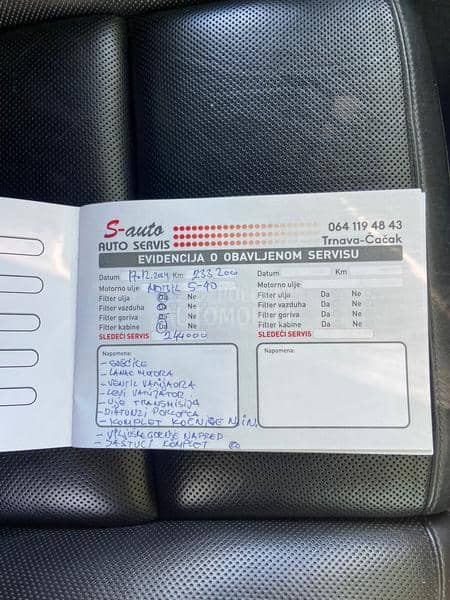 S-auto
AUTO SERVIS
064 119 48 43
Trnava-Čačak
EVIDENCIJA O OBAVLJENOM SERVISU
Datum 17.12.2024 Km 233200
Motorno ulje MOBIL 5-40
Filter ulja Da Ne
Filter vazduha Da Ne
Filter goriva Da Ne
Filter kabine Da Ne
SLEDEĆI SERVIS 244000
Napomena:
- SVEĆICE
- LANAC MOTORA
- VENTIL VARIJAORA
- LEVI VARIJATOR
- ULJE TRANSMISIJA
- DIHTUNZI POKLOPCA
- KOMPLET KOČNICE
- GORNJE NAPRED
- JASTUCI KOMPLET
Datum Km
Motorno ulje
Filter ulja Da Ne
Filter vazduha Da Ne
Filter goriva Da Ne
Filter kabine Da Ne
SLEDEĆI SERVIS
Napomena: